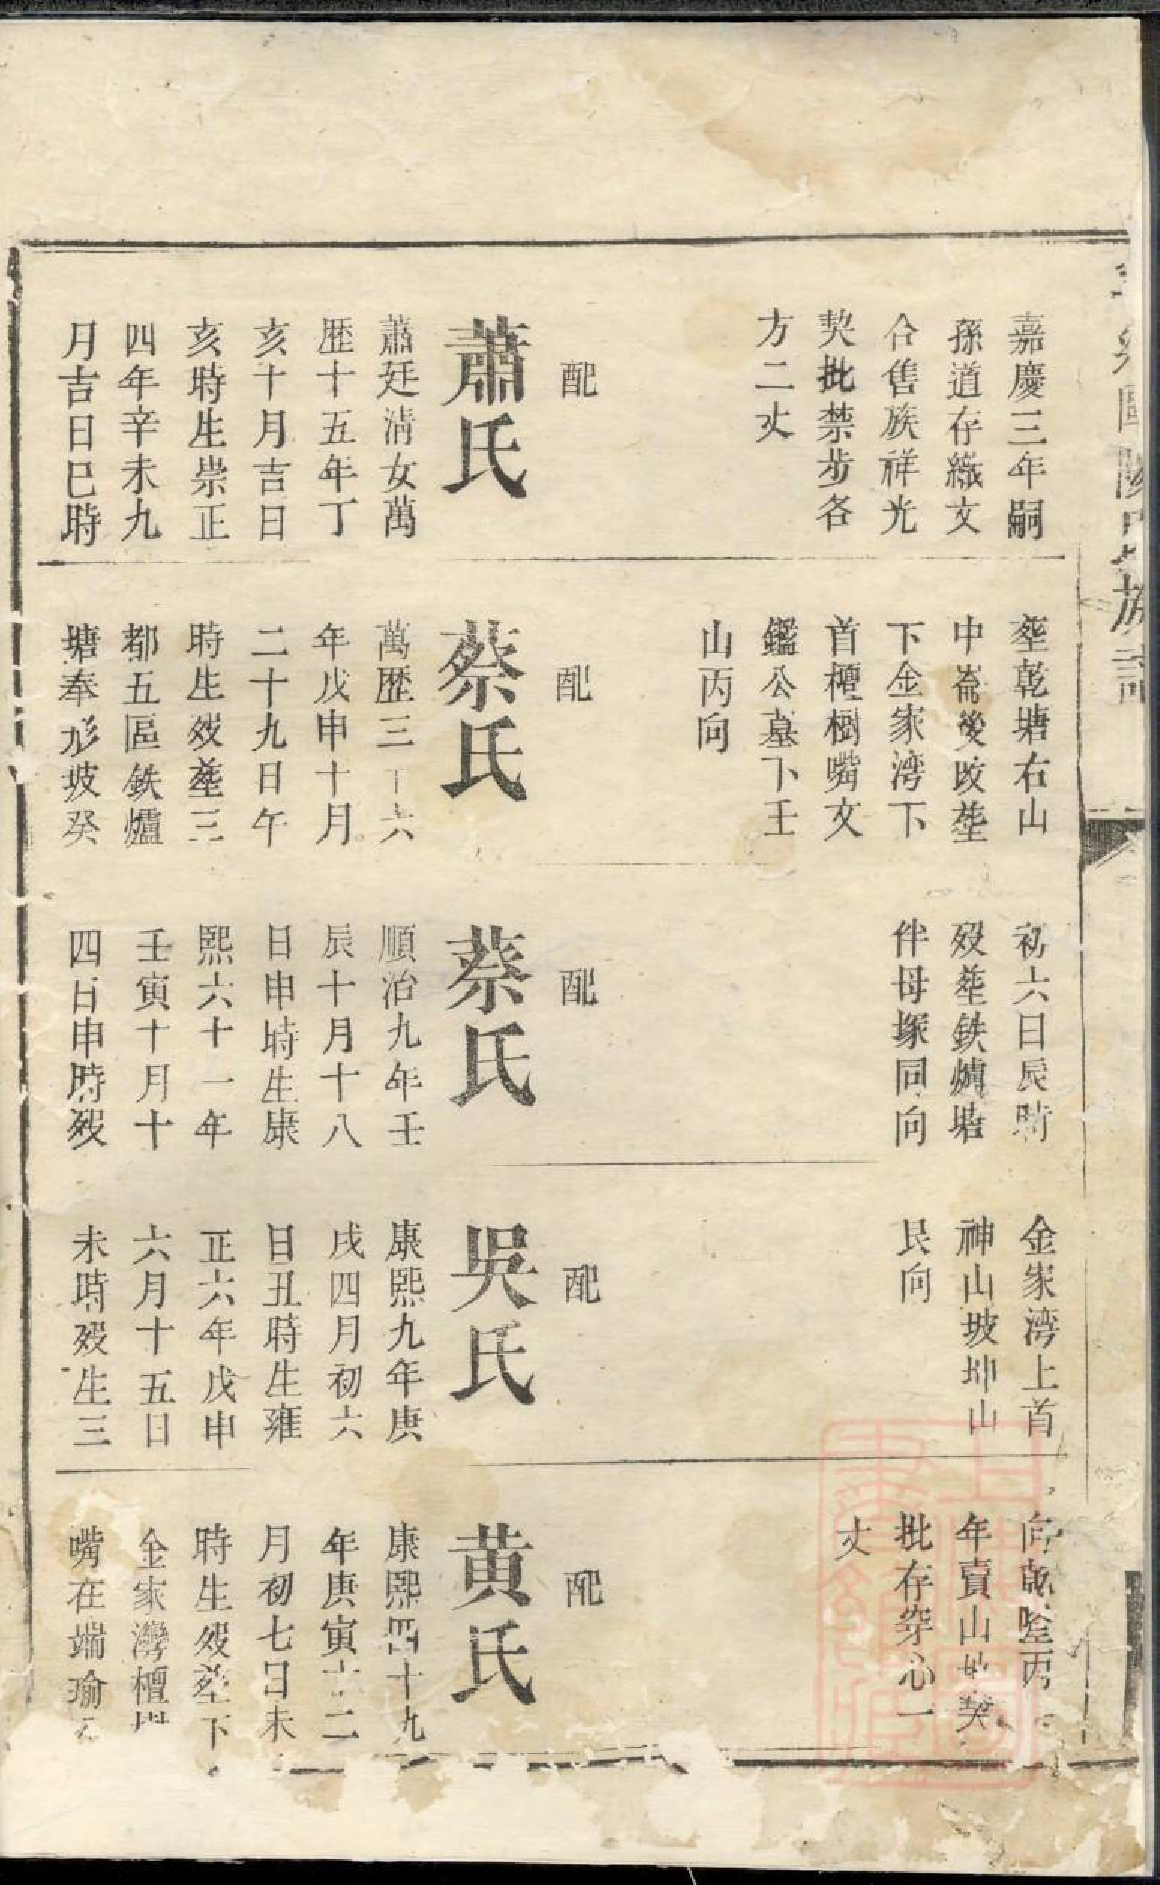 嘉慶三年嗣
孫道存繼文
合售族祥光
契批禁步各
方二丈
配
蕭氏
蕭廷淸女萬
歴十五年丁
亥十月吉日
亥時生崇正
四年辛未九
月吉日巳時
塟乾塘右山
中崙後改塟
下金家湾下
首檀樹嘴文
鑑公墓下壬
山丙向
配
蔡氏
萬歴三十六
年戊申十月
二十九日午
時生歿塟三
都五區鉄爐
塘奉形坡癸
初六日辰時
歿塟鉄爐塘
伴母塚同向
配
蔡氏
順治九年壬
辰十月十八
日申時生康
熙六十一年
壬寅十月十
四日申時歿
金家湾上首
神山坡坤山
艮向
配
吳氏
康熙九年庚
戌四月初六
日丑時生雍
正六年戊申
六月十五日
未時歿生三
向乾
年賣山契
批存穿心一
丈
配
黄氏
康熙四十九
年庚寅十二
月初七日未
時生歿塟下
金家灣檀樹
嘴在端瑜
族譜